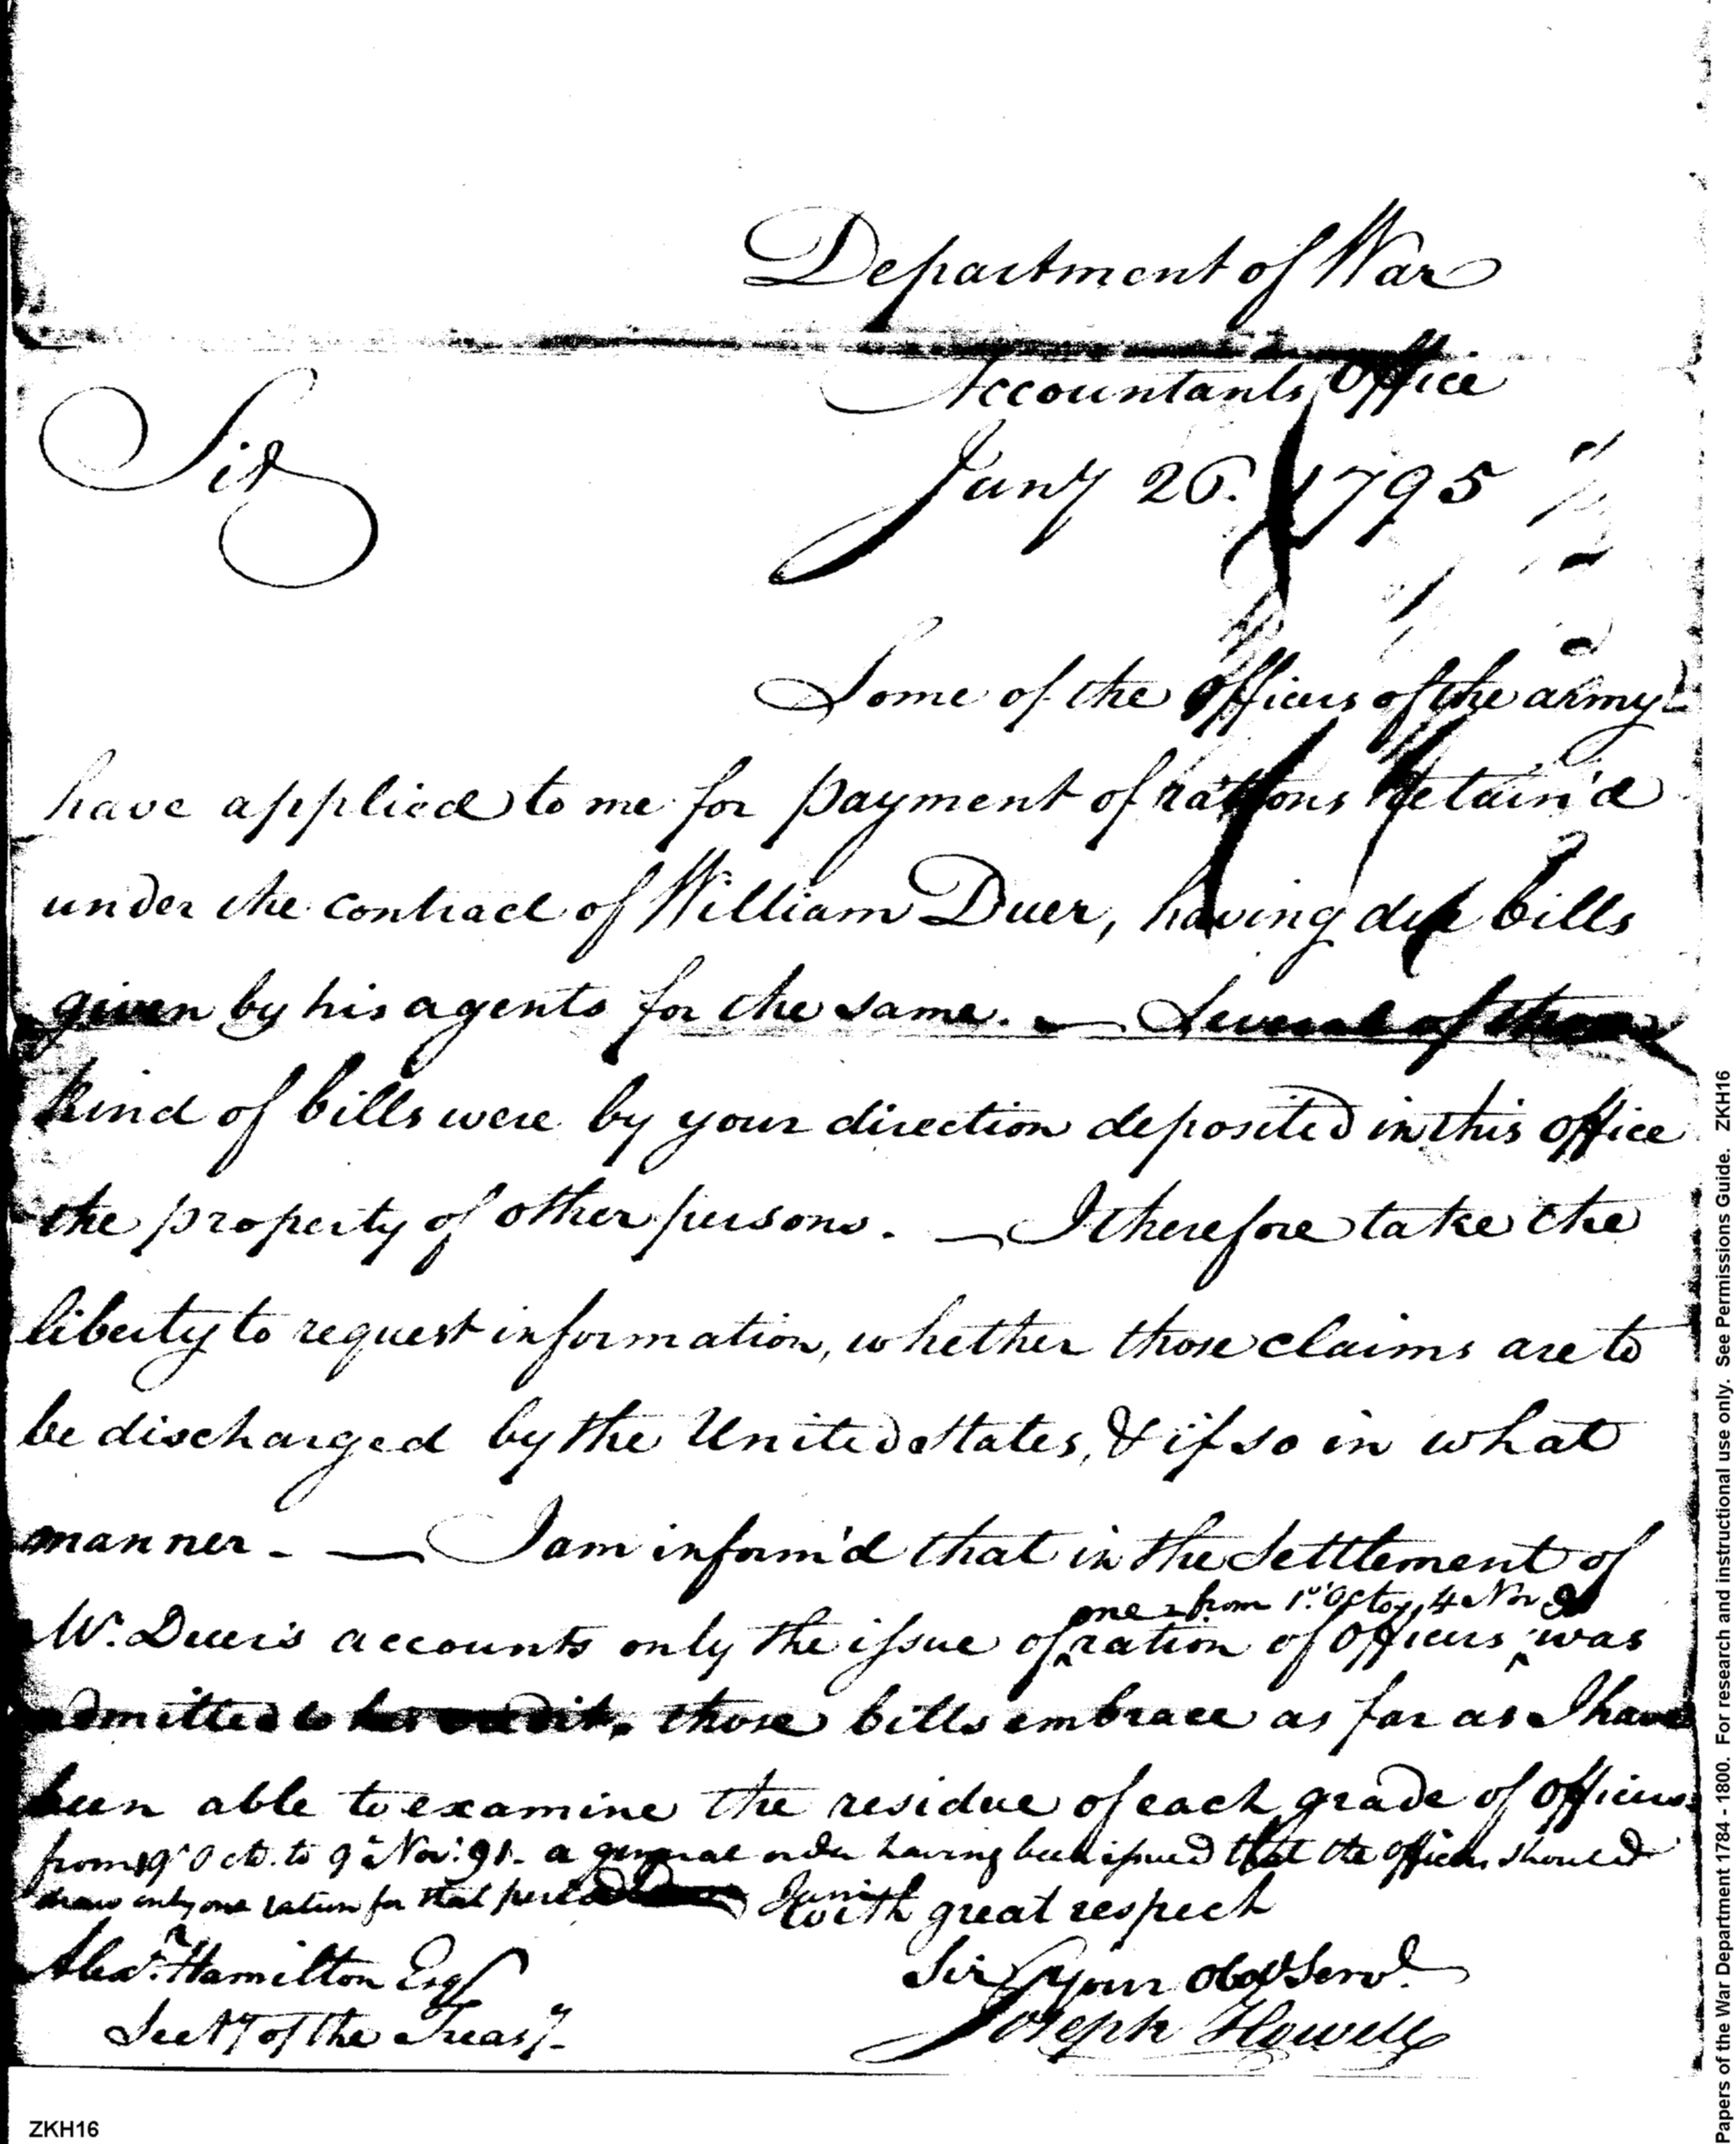 Department of War
Accountants Office
Sir
Jany 26. 1795
Some of the officers of the army
have applied to me for payment of rations retain'd
under the contract of William Duer, having due bills
given by his agents for the same. — Several of these
kind of bills were by your direction deposited in this office
the property of other persons. — I therefore take the
liberty to request information, whether those claims are to
be discharged by the United States, & if so in what
manner - — I am inform'd that in the Settlement of
one from 1st Octo, 4 Nov 91
W. Duer's accounts only the issue of ration of Officers was
admitted to his credit, those bills embrace as far as I have
been able to examine the residue of each grade of Officers
from 19 Octo. to 9 Nov: 91. a general order having been issued that the officers should
draw only one ration for that period
I am with great respect
Alexr. Hamilton Esqr
Sir your obdt Servt.
Secty of the Treasy.
Joseph Howell
ZKH16
Papers of the War Department 1784 - 1800. For research and instructional use only. See Permissions Guide. ZKH16